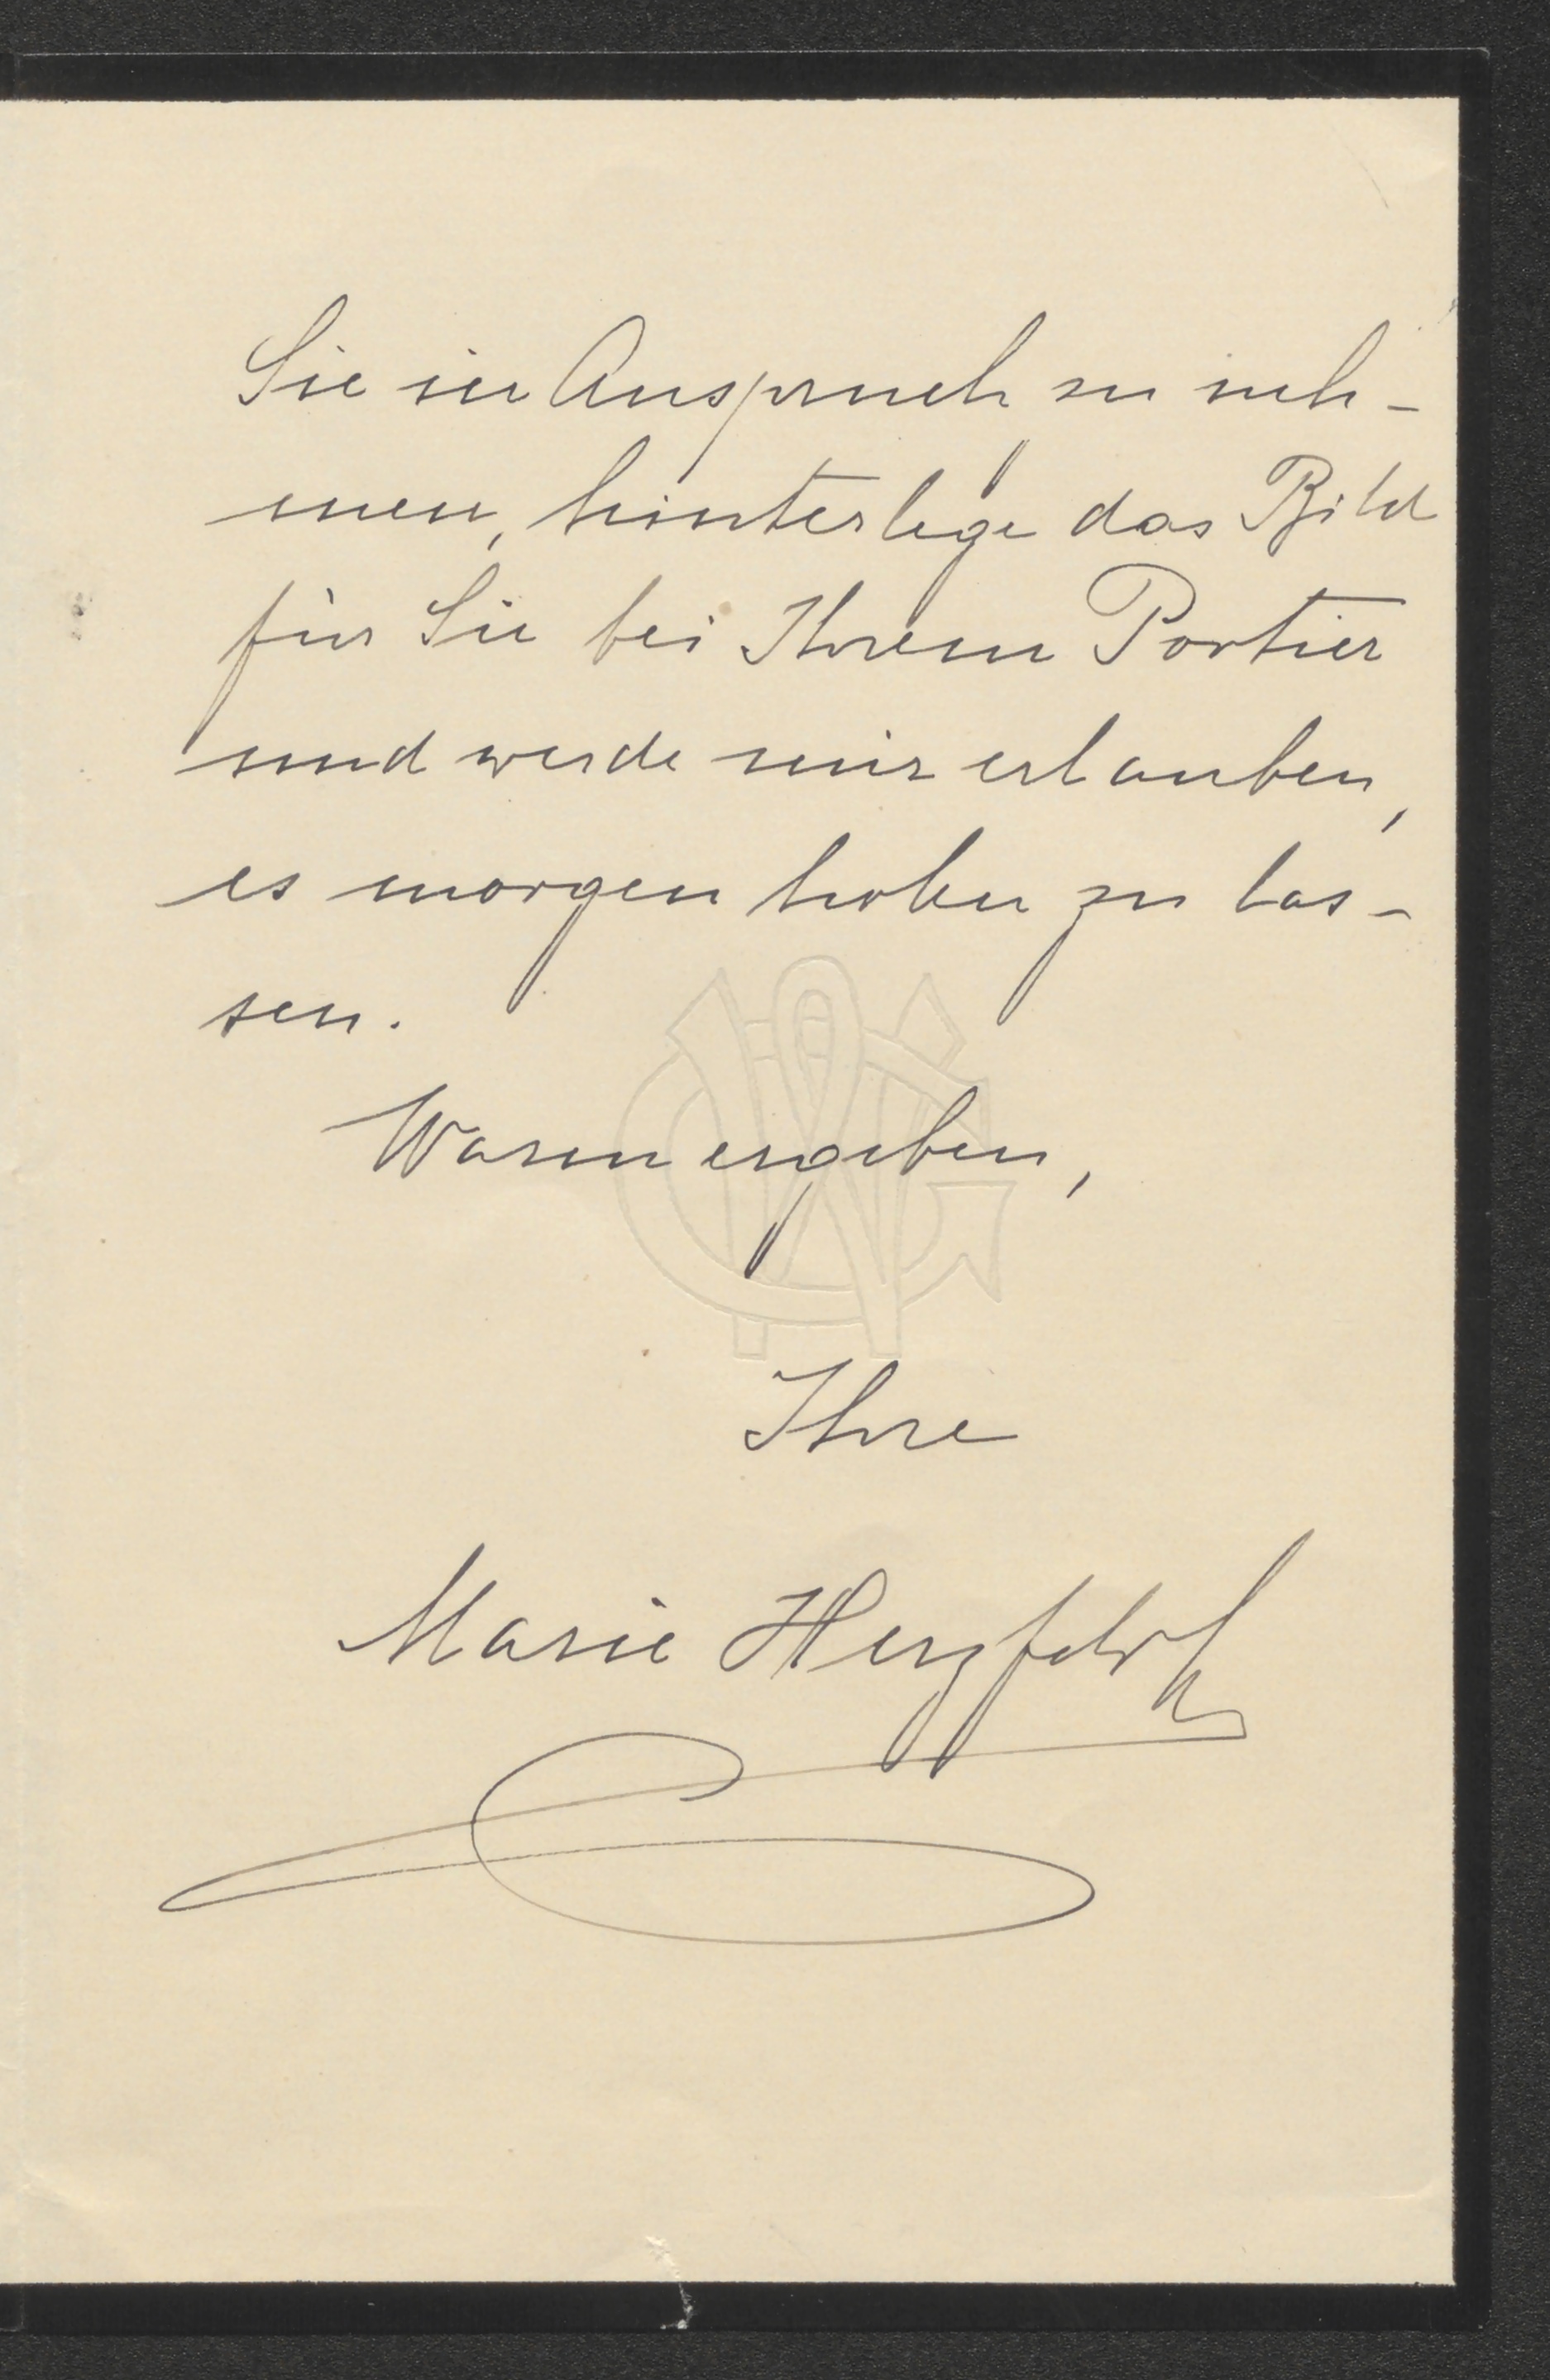 Sie in Anspruch zu neh-
men, hinterlege das Bild
für Sie bei Ihrem Portier
und werde mir erlauben,
es morgen holen zu las-
sen.
Warm ergeben,
Ihre
Marie Herzfeld